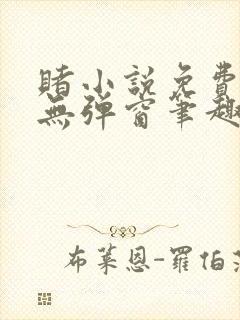 賭小説免費
無彈窗筆趣
布萊恩-羅伯